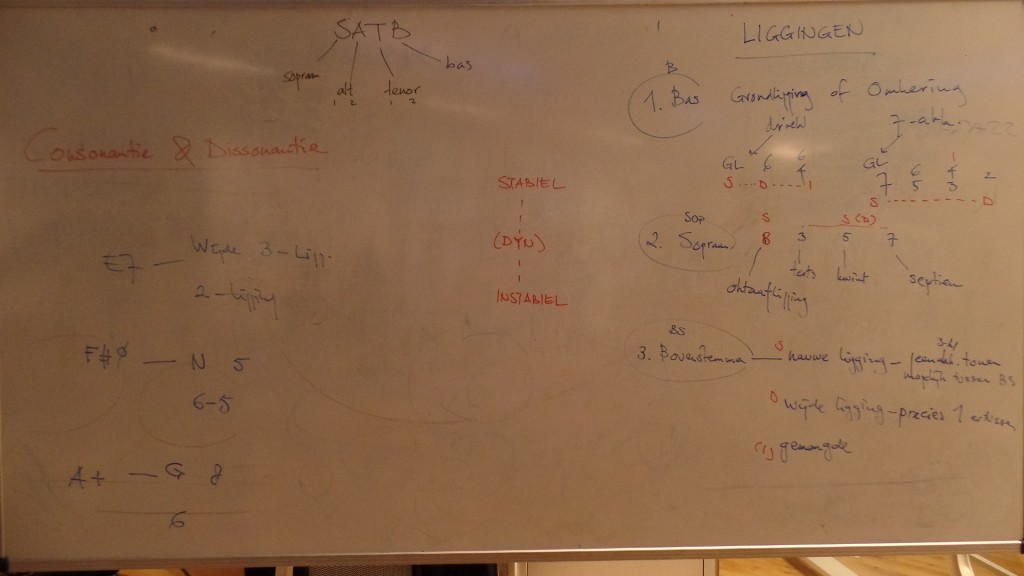 SATB
sopraan alt tenor bas
1 2 1 2
Consonantie & Dissonantie
STABIEL
(DYN)
INSTABIEL
E7 — Wijde 3-Ligg.
2-ligging
F#ø — N 5
6-5
A+ — G 8
6
LIGGINGEN
B
1. Bas Grondligging of Omkering
GL 6 6
4
S D I
GL
7 6 4 2
5 3
S D
Sop
2. Sopraan
S S (D)
8 3 5 7
oktaafligging terts kwint septiem
BS
3. Bovenstemma — S nauwe ligging –
D Wijde ligging – precies 1
(I) gemengde